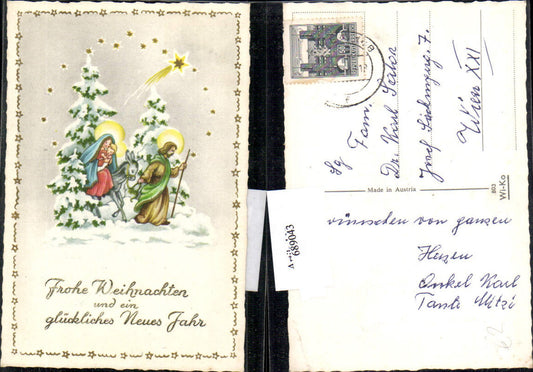 Frohe Weihnachten
und ein
glückliches Neues Jahr
Sg Fam.
Dr. Karl
Josef
Wien XXI
Made in Austria
803
Wi-Ko
689043
wünschen von ganzen
Herzen
Onkel Karl
Tante Mitzi